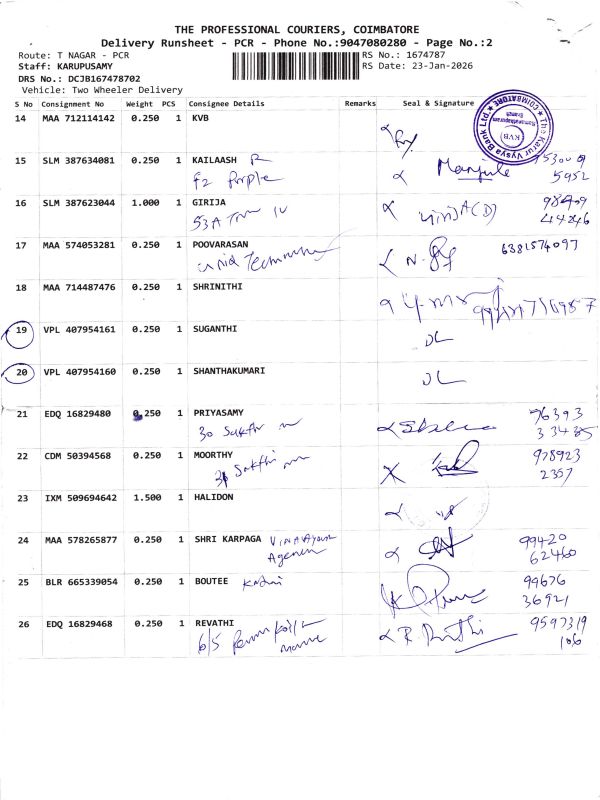 THE PROFESSIONAL COURIERS, COIMBATORE
Delivery Runsheet - PCR - Phone No.:9047080280 - Page No.:2
Route: T NAGAR - PCR
RS No.: 1674787
Staff: KARUPUSAMY
RS Date: 23-Jan-2026
DRS No.: DCJB167478702
Vehicle: Two Wheeler Delivery
S No Consignment No Weight PCS Consignee Details Remarks Seal & Signature
14 MAA 712114142 0.250 1 KVB
The Karur Vysya Bank Ltd. COIMBATORE
(KVB)
Branch
15 SLM 387634081 0.250 1 KAILAASH R
F2 Purple
Manjule
5952
16 SLM 387623044 1.000 1 GIRIJA
53A
44246
17 MAA 574053281 0.250 1 POOVARASAN
6381574097
18 MAA 714487476 0.250 1 SHRINITHI
19 VPL 407954161 0.250 1 SUGANTHI
DL
20 VPL 407954160 0.250 1 SHANTHAKUMARI
DL
21 EDQ 16829480 0.250 1 PRIYASAMY
30 Sakthi
76393
33485
22 CDM 50394568 0.250 1 MOORTHY
Sakthi
978923
2357
23 IXM 509694642 1.500 1 HALIDON
24 MAA 578265877 0.250 1 SHRI KARPAGA VINAYAGAR
Agencies
99420
62460
25 BLR 665339054 0.250 1 BOUTEE
99676
36921
26 EDQ 16829468 0.250 1 REVATHI
6/5
9597319
106